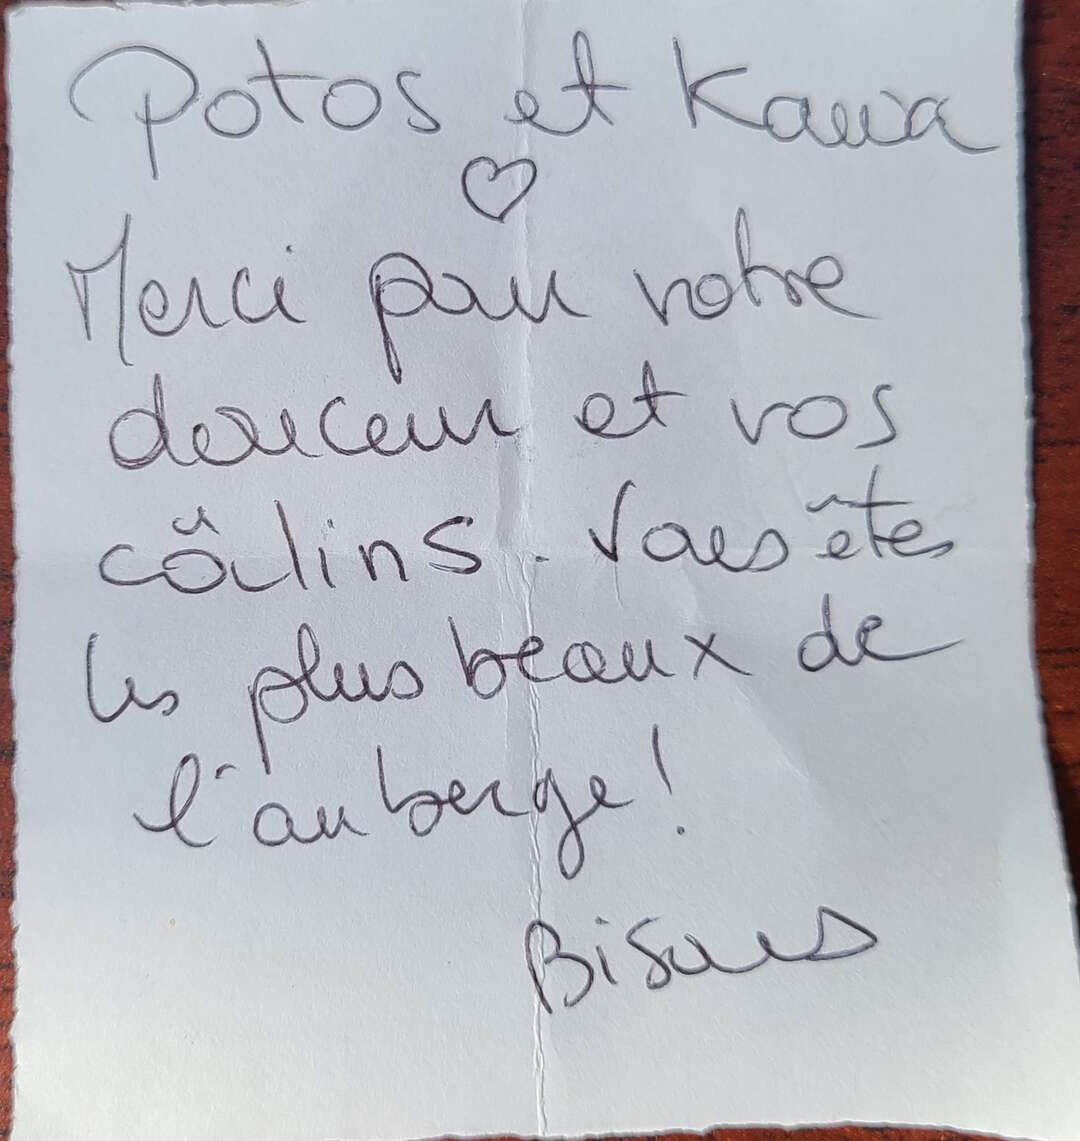 Potos et Kawa
♡
Merci pour votre
douceur et vos
câlins. Vous êtes
les plus beaux de
l'auberge!
Bisous